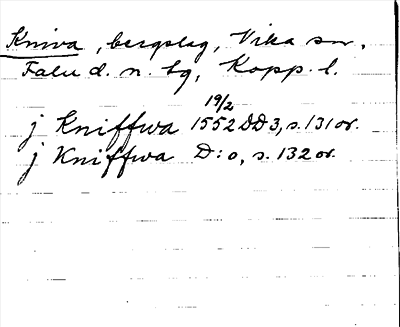 Kniva, bergslag, Vika sn,
Falu d. n. tg, Kopp. l.
19/2
j Kniffwa 1552 DD3, s. 131 or.
j Kniffwa D:o, s. 132 or.